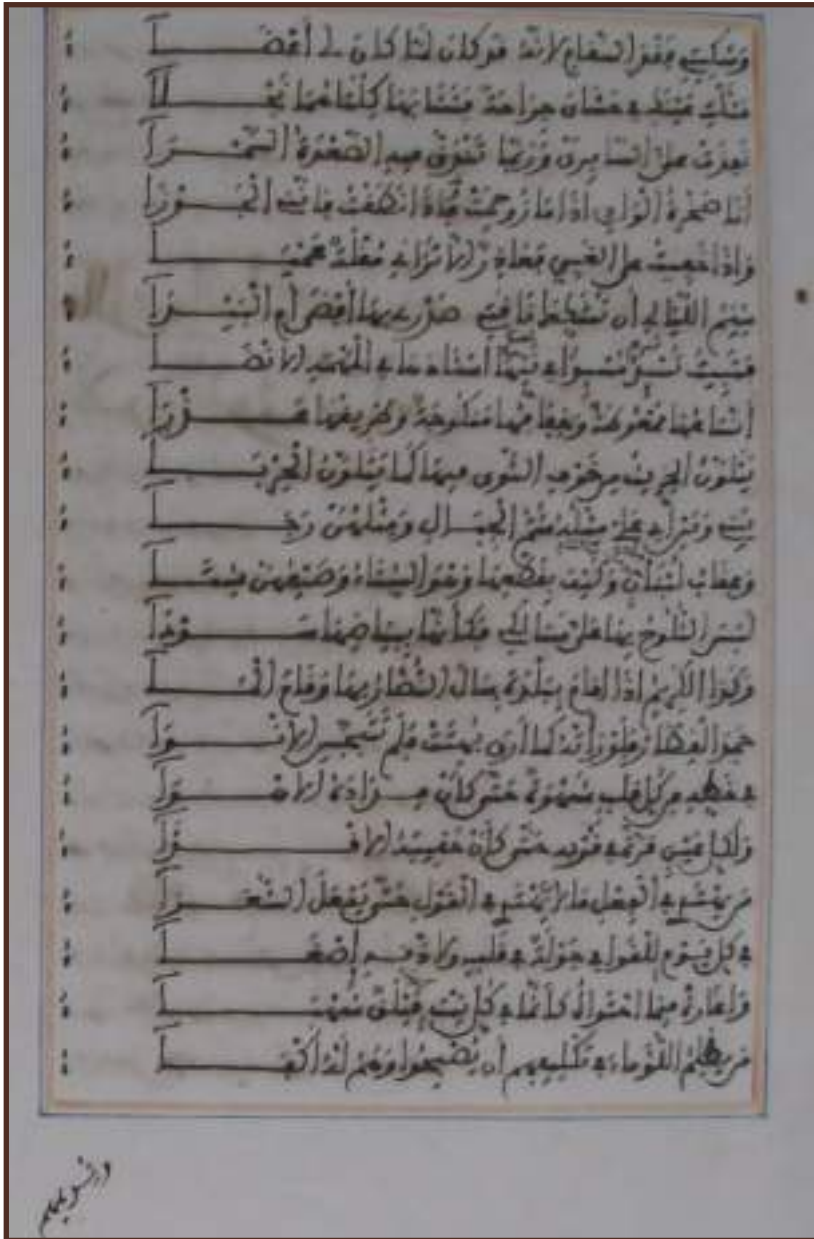 وشكيتي فقد السقام لانه قد كان لما كان لي أعضـــا
مثلت عينك في حشاي جراحة فتشابها كلتاهما نجـــلا
نفذت علي السابري وربما تندق فيه الصعدة السمـــرا
أنا صخرة الوادي إذا ما زوحمت وإذا نطقت فإنني الجـــوزا
وإذا خفيت على الغبي فعاذر ألا تراني مقلة عميـــا
شيم الليالي أن تشكك ناقتي صدري بها أفضى أم البيـــدا
فتبيت تسئد مسئدا في نيها إسئادها في المهمه الانضـــا
أنساعها ممغوطة وخفافها منكوحة وطريقها عـــذرا
يتلون الخريت من خوف التوى فيها كما يتلون الحربـــا
بيني وبين أبي علي مثله شم الجبال ومثلهن رجـــا
وعقاب لبنان وكيف بقطعها وهو الشتاء وصيفهن شتـــا
لبس الثلوج بها علي مسالكي فكأنها ببياضها ســـودا
وكذا الكريم إذا أقام ببلدة سال النضار بها وقام المـــا
جمد القطار ولو رأته كما أرى بهتت فلم تتبجس الانـــوا
في خطه من كل قلب شهوة حتى كأن مداده الاهـــوا
ولكل عين قرة في قربه حتى كأن مغيبه الاقـــذا
من يهتدي في الفعل ما لا يهتدي في القول حتى يفعل الشعـــرا
في كل يوم للقوافي جولة في قلبه ولاذنه إصغـــا
وإغارة فيما احتواه كأنما في كل بيت فيلق شهبـــا
من يظلم اللؤماء في تكليفهم أن يصبحوا وهم له أكفـــا
ونذيمهم